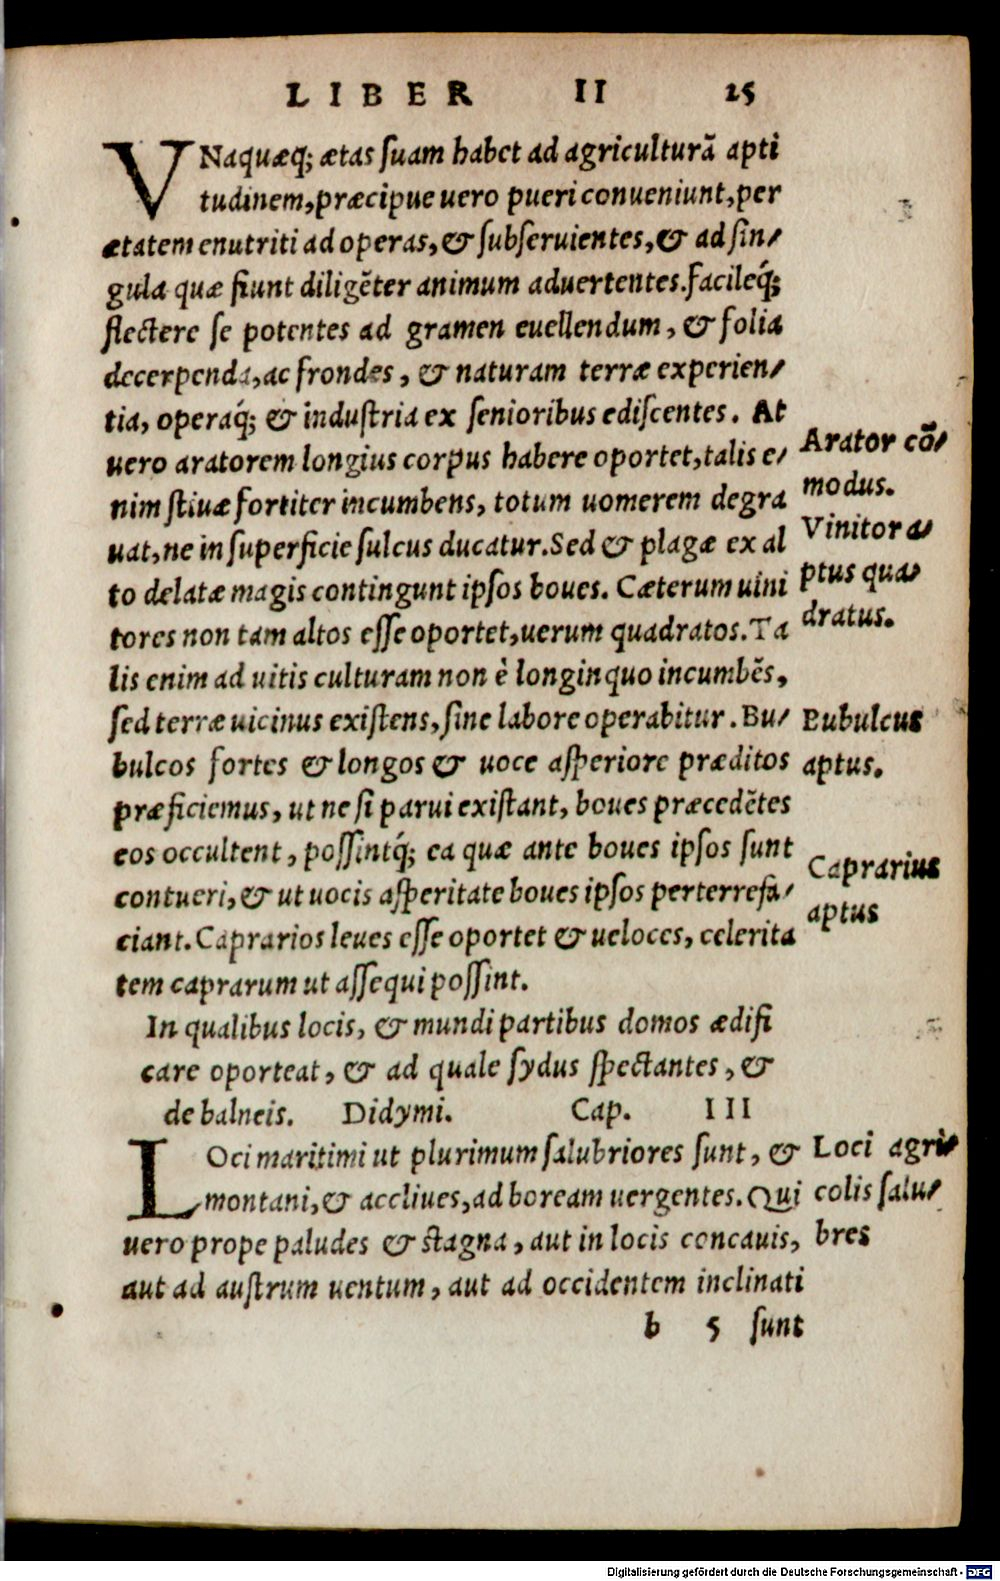 LIBER II 25
VNaquæq; ætas ſuam habet ad agriculturã apti
tudinem,præcipue uero pueri conueniunt,per
ætatem enutriti ad operas,& ſubſeruientes,& ad ſin⸗
gula quæ fiunt diligẽter animum aduertentes.facileq́;
flectere ſe potentes ad gramen euellendum, & folia
decerpenda,ac frondes, & naturam terræ experien⸗
tia, operaq́; & induſtria ex ſenioribus ediſcentes. At
uero aratorem longius corpus habere oportet,talis e⸗
nim ſtiuæ fortiter incumbens, totum uomerem degra
uat,ne in ſuperficie ſulcus ducatur.Sed & plagæ ex al
to delatæ magis contingunt ipſos boues. Cæterum uini
tores non tam altos eſſe oportet,uerum quadratos.Ta
lis enim ad uitis culturam non è longinquo incumbẽs,
ſed terræ uicinus exiſtens,ſine labore operabitur. Bu⸗
bulcos fortes & longos & uoce aſperiore præditos
præficiemus, ut ne ſi parui exiſtant, boues præcedẽtes
eos occultent, poſſintq́; ea quæ ante boues ipſos ſunt
contueri,& ut uocis aſperitate boues ipſos perterrefa⸗
ciant.Caprarios leues eſſe oportet & ueloces, celerita
tem caprarum ut aſſequi poſſint.
Arator cõ⸗
modus.
Vinitor a⸗
ptus qua⸗
dratus.
Bubulcus
aptus.
Caprarius
aptus
In qualibus locis, & mundi partibus domos ædifi
care oporteat, & ad quale ſydus ſpectantes, &
de balneis. Didymi. Cap. III
LOci maritimi ut plurimum ſalubriores ſunt, &
montani,& accliues,ad boream uergentes. Qui
uero prope paludes & stagna, aut in locis concauis,
aut ad auſtrum uentum, aut ad occidentem inclinati
Loci agri⸗
colis ſalu⸗
bres
b 5 ſunt
Digitalisierung gefördert durch die Deutsche Forschungsgemeinschaft - DFG